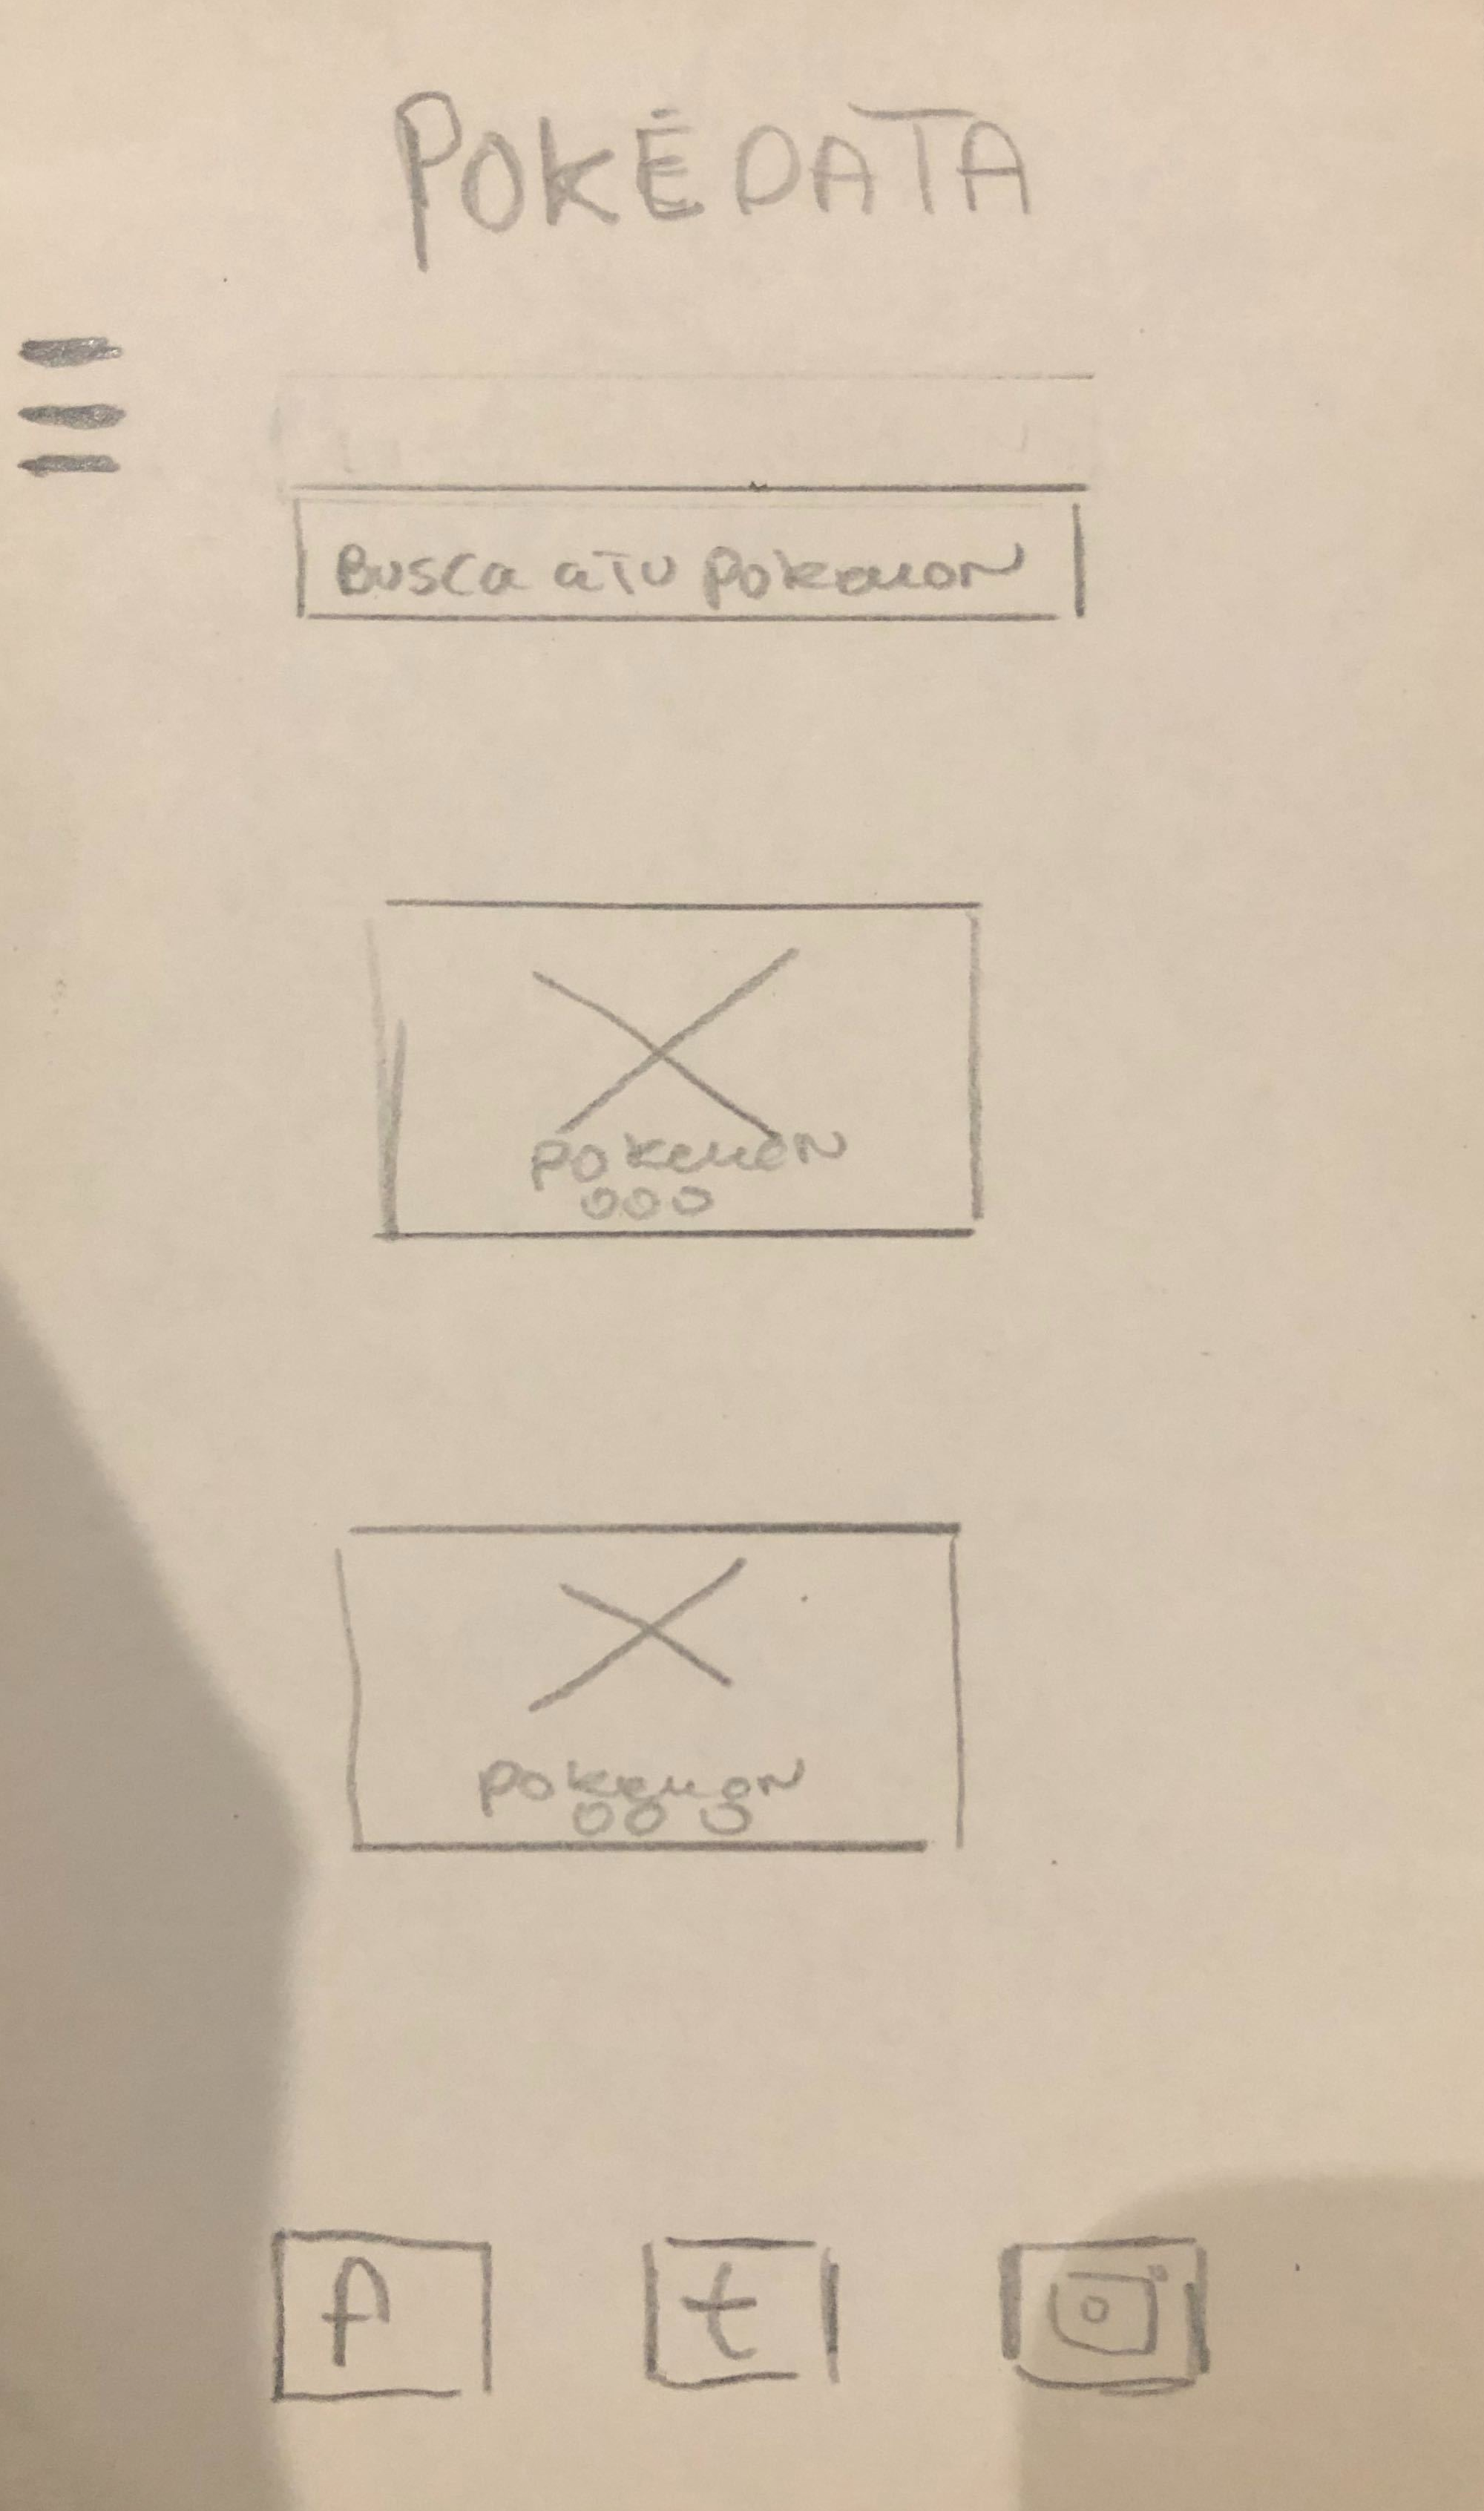 POKÉDATA
Busca a Tu pokemon
pokemon
ooo
pokemon
ooo
f t